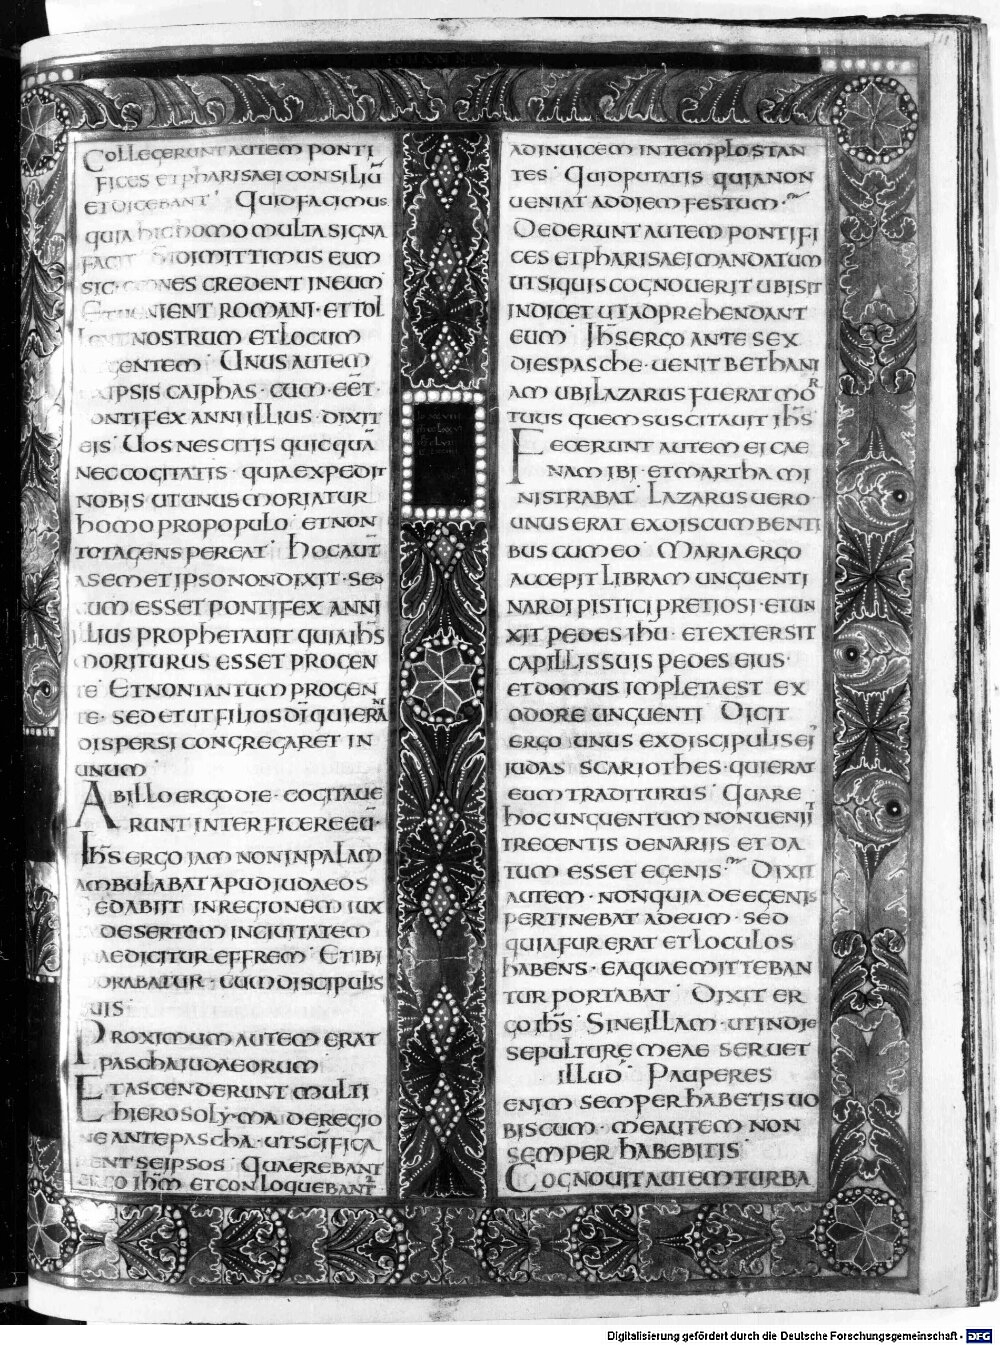 COLLEGERUNT AUTEM PONTI
FICES ET PHARISAEI CONSILIŪ
ET DICEBANT · QUID FACIMUS
QUIA HIC HOMO MULTA SIGNA
FACIT SI DIMITTIMUS EUM
SIC · OMNES CREDENT IN EUM
ET UENIENT ROMANI · ET TOL
LENT NOSTRUM ET LOCUM
GENTEM · UNUS AUTEM
IPSIS CAIPHAS · CUM · EĒT ·
ONTIFEX ANNI ILLIUS · DIXIT
EIS · UOS NESCITIS QUICQUĀ
NEC COGITATIS · QUIA EXPEDIT
NOBIS UT UNUS MORIATUR
HOMO PRO POPULO · ET NON
TOTA GENS PEREAT · HOC AUT̄
A SEMET IPSO NON DIXIT · SED
CUM ESSET PONTIFEX ANNI
ILLIUS PROPHETAUIT QUIA IH̄S
MORITURUS ESSET PRO GEN
TE · ET NON IANTUM PRO GEN
TE · SED ET UT FILIOS DĪ QUI ERANT
DISPERSI CONGREGARET IN
UNUM ·
AB ILLO ERGO DIE · COGITAUE
RUNT INTERFICERE EŪ ·
IH̄S ERGO IAM NON IN PALAM
AMBULABAT APUD IUDAEOS
SED ABIIT IN REGIONEM IUX
DESERTUM IN CIUITATEM
AE DICITUR EFFREM · ET IBI
ORABATUR · CUM DISCIPULIS
UIS ·
PROXIMUM AUTEM ERAT
PASCHA IUDAEORUM ·
ET ASCENDERUNT MULTI
HIEROSOLYMA DE REGIO
NE ANTE PASCHA · UT SCĪFICA
RENT SE IPSOS · QUAEREBANT
ERGO IH̄M ET CONLOQUEBANT
AD INUICEM IN TEMPLO STAN
TES · QUID PUTATIS QUIA NON
UENIAT AD DIEM FESTUM ·
DEDERUNT AUTEM PONTIFI
CES ET PHARISAEI MANDATUM
UT SI QUIS COGNOUERIT UBI SIT
INDICET UT ADPREHENDANT
EUM · IH̄S ERGO ANTE SEX
DIES PASCHE · UENIT BETHANI
AM UBI LAZARUS FUERAT MOR
TUUS QUEM SUSCITAUIT IH̄S
FECERUNT AUTEM EI CAE
NAM IBI · ET MARTHA MI
NISTRABAT · LAZARUS UERO ·
UNUS ERAT EX DISCUMBENTI
BUS CUM EO · MARIA ERGO
ACCEPIT LIBRAM UNGUENTI
NARDI PISTICI PRETIOSI · ET UN
XIT PEDES IHU · ET EXTERSIT
CAPILLIS SUIS PEDES EIUS ·
ET DOMUS IMPLETA EST EX
ODORE UNGUENTI · DICIT
ERGO UNUS EX DISCIPULIS EI
IUDAS SCARIOTHES · QUI ERAT
EUM TRADITURUS · QUARE
HOC UNGUENTUM NON UENIIT
TRECENTIS DENARIIS ET DA
TUM ESSET EGENIS · DIXIT
AUTEM · NON QUIA DE EGENIS
PERTINEBAT AD EUM · SED
QUIA FUR ERAT ET LOCULOS
HABENS · EA QUAE MITTEBAN
TUR PORTABAT · DIXIT ER
GO IH̄S · SINE ILLAM · UT IN DIE
SEPULTURĘ MEAE SERUET
ILLUD · PAUPERES
ENIM SEMPER HABETIS UO
BISCUM · ME AUTEM NON
SEMPER HABEBITIS
COGNOUIT AUTEM TURBA
Digitalisierung gefördert durch die Deutsche Forschungsgemeinschaft - DFG